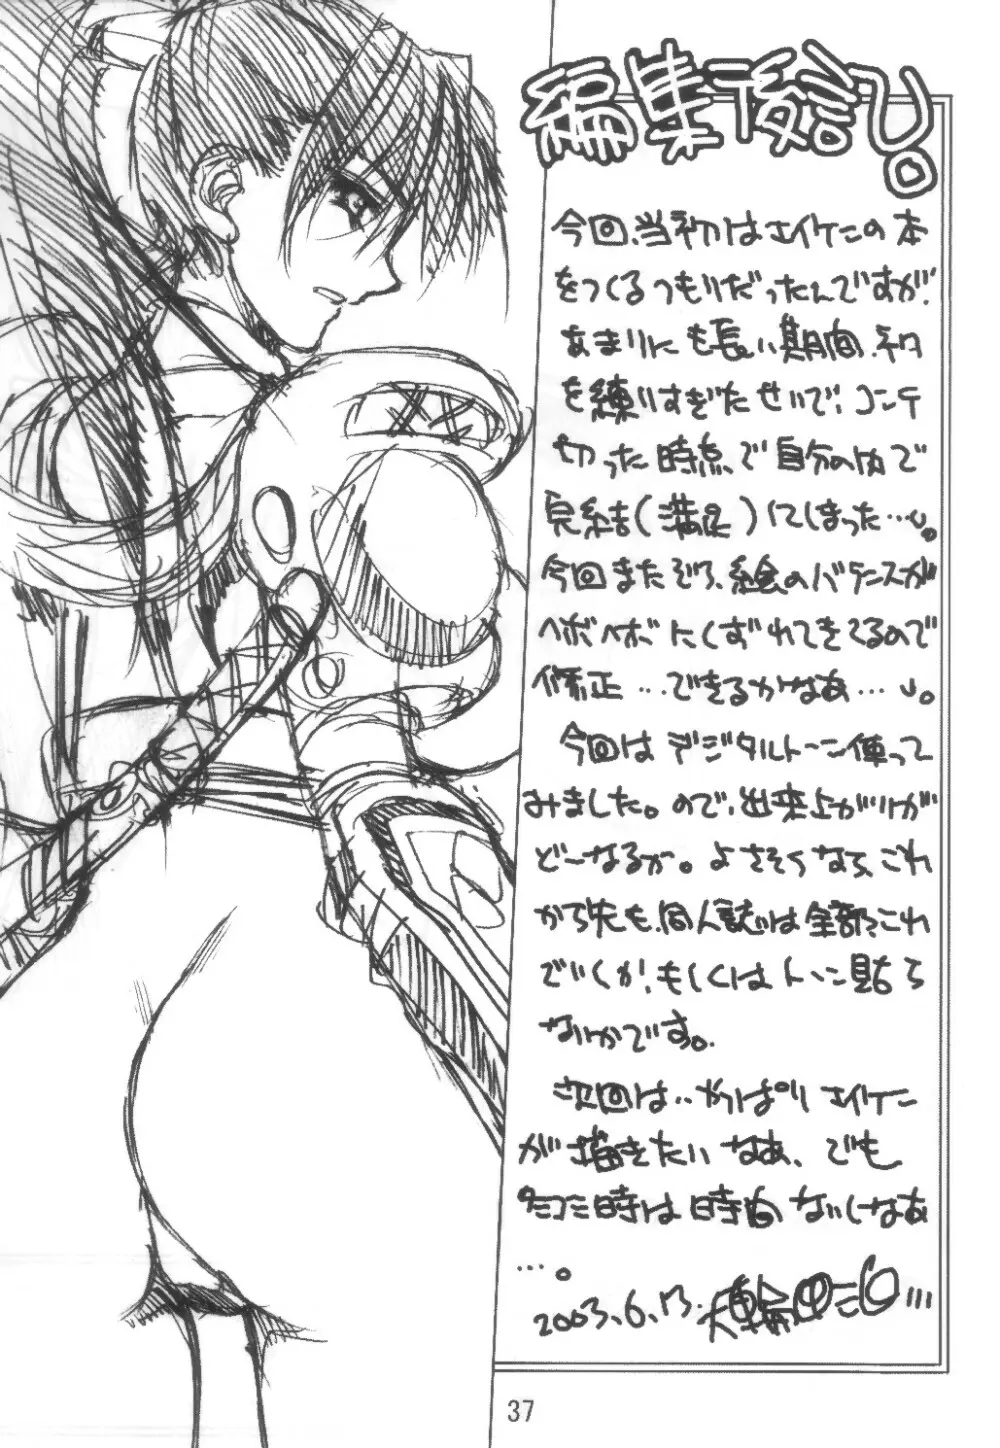 編集後記。
今回、当初はエイケンの本
をつくるつもりだったんですが、
あまりにも長い期間、ネタ
を練りすぎたせいで、コンテ
切った時点で自分の内で
完結(満足)にてしまった…。
今回またぞろ、絵のバランスが
ヘボヘボにくずれてきてるので
修正…できるかなあ…。
今回はデジタルトーン使って
みました。ので、出来上がりが
どーなるか。よさそうなら、これ
から先も、同人誌は全部これ
でいくか、もしくはトーン貼ら
ないかです。
次回は…やっぱりエイケン
が描きたいなあ、でも
時は時間ないしなあ
…。
2003.6.13.
37